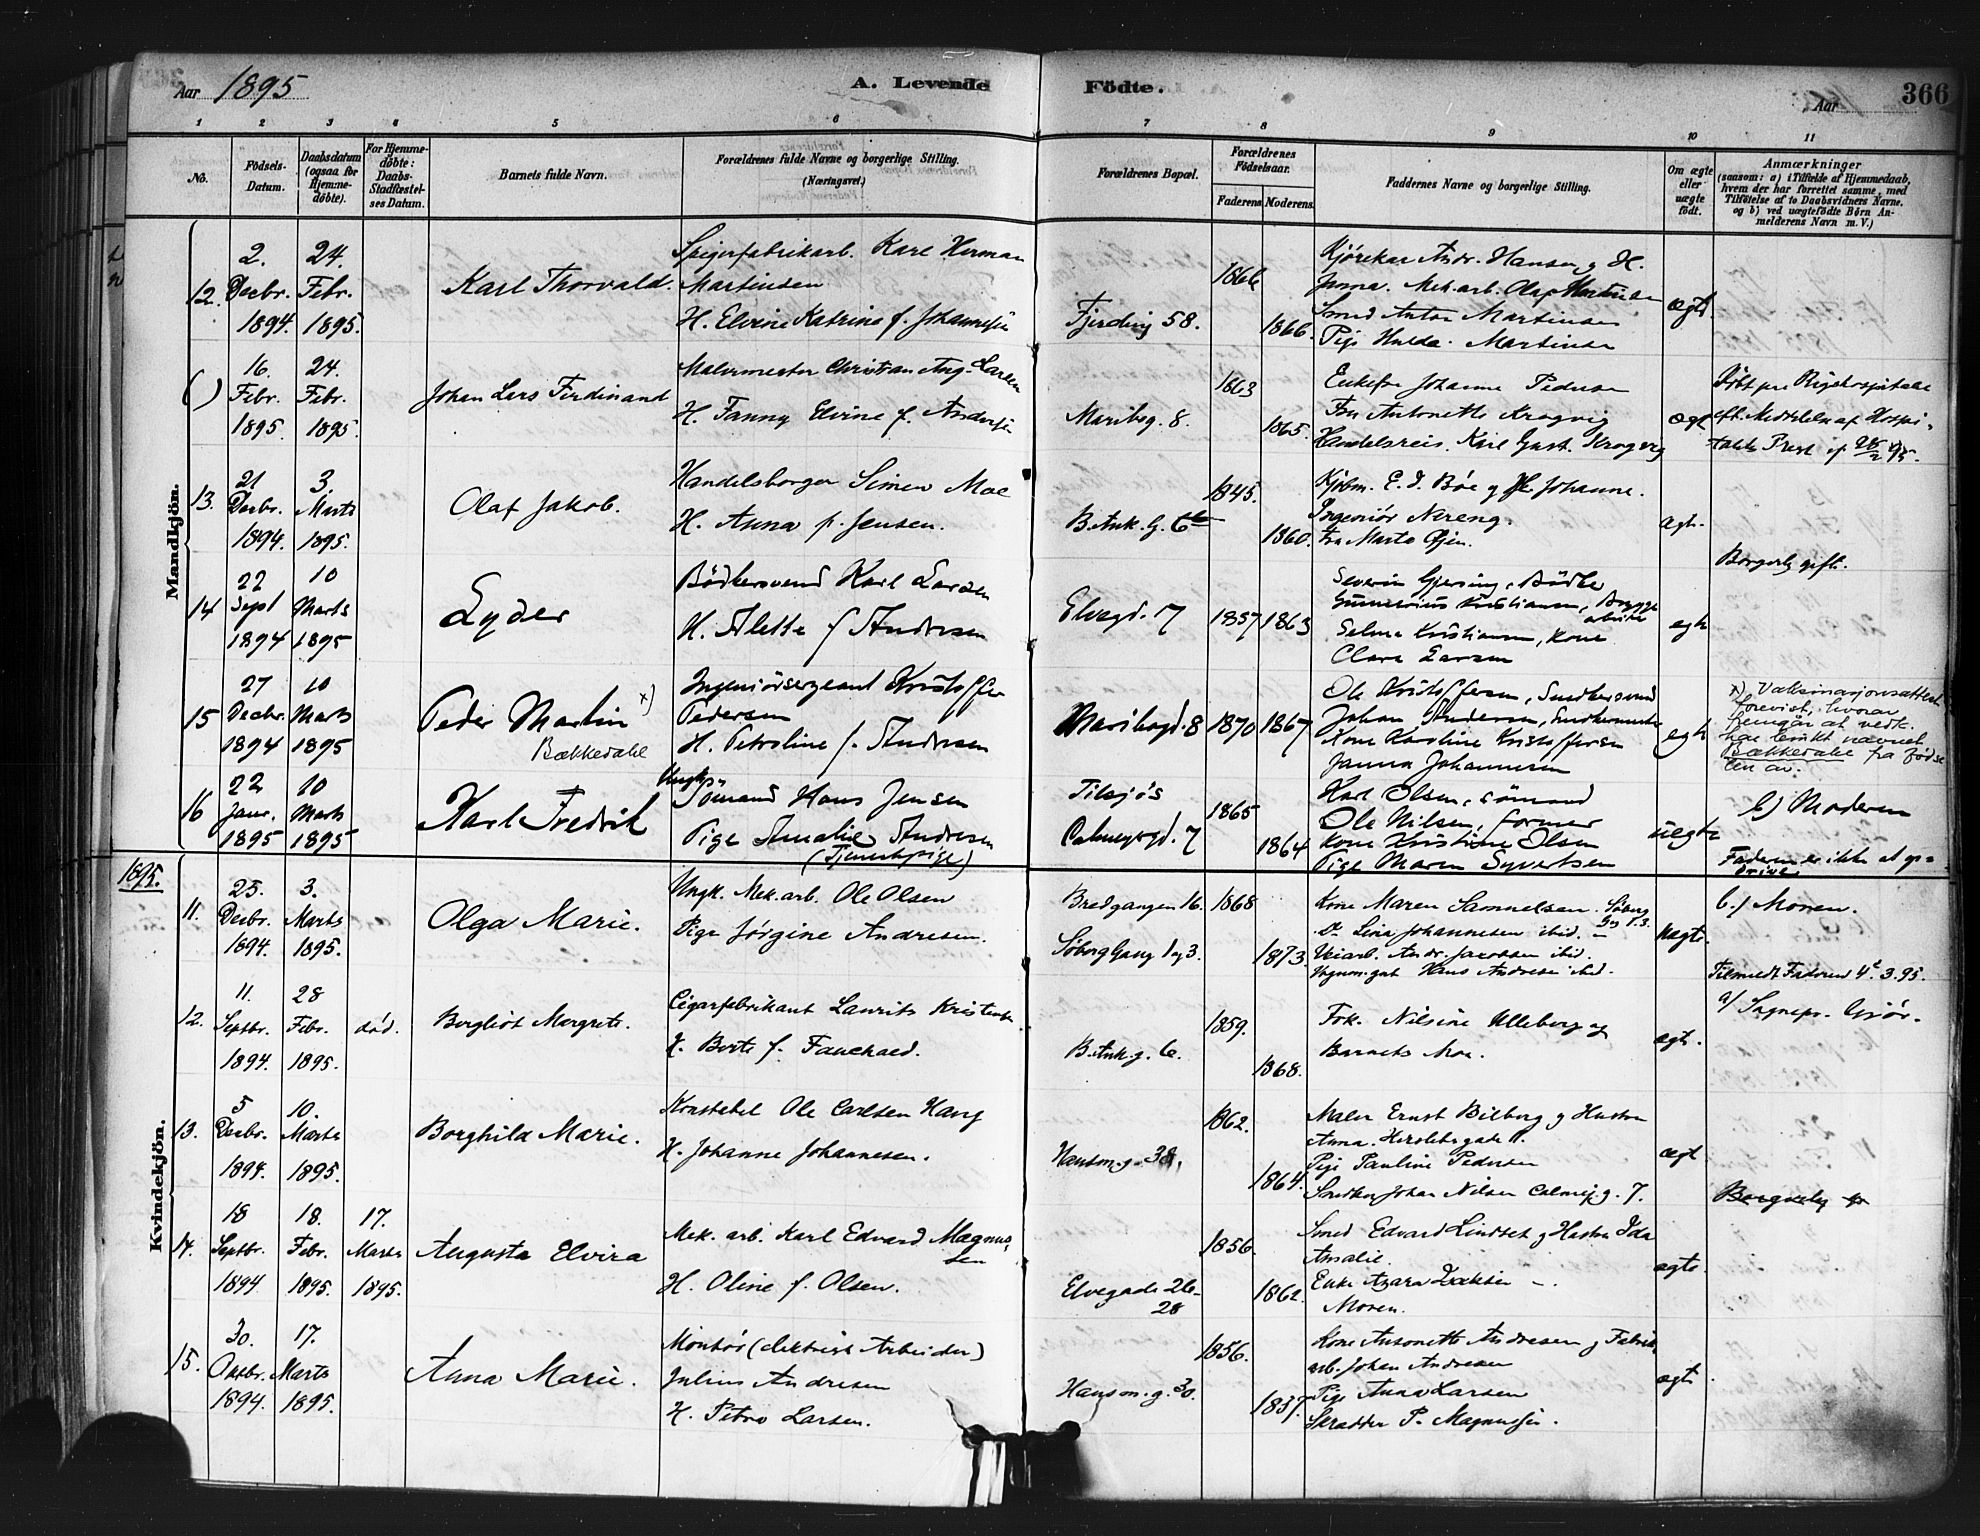 Aar 1895
A. Levende Födte.
Aar
366
1 2 3 4 5 6 7 8 9 10 11
No.
Födsels-Datum.
Daabsdatum (ogsaa for Hjemme-döbte).
For Hjemme-döbte: Daabs-Stadfæstelses Datum.
Barnets fulde Navn.
Forældrenes fulde Navne og borgerlige Stilling. (Næringsvei.)
Forældrenes Bopæl.
Forældrenes Födselsaar.
Faderens Moderens
Faddernes Navne og borgerlige Stilling.
Om ægte eller uægte födt.
Anmærkninger
(saasom: a) i Tilfælde af Hjemmedaab, hvem der har forrettet samme, med Tilföielse af to Daabsvidners Navne. og b) ved uægtefödte Börn Anmelderens Navn m. V.)
Mandkjön.
12. 2. Decbr. 1894. 24. Febr. 1895.
Karl Thorvald.
Spigerfabrikarb. Karl Herman
Martinsen
H. Elvine Katrine f. Johannesen
Fjerding 58.
1866 1866.
Kjørekar Andr. Hansen g H.
Mek. arb. Olaf Martinsen
Smed Anton Martinsen
Pige Hulda Martinsen
ægte.
( ) 16. Febr. 1895. 24. Febr. 1895.
Johan Lars Ferdinand
Malermester Christian Aug. Larsen
H. Fanny Elvine f. Andersen
Maribog. 8.
1863 1865.
Enkefru Johanne Pedersen
Fru Antonette Krogvig
Handelsreis. Karl Gust. Krogvig
ægte
Døbt paa Rigshospitalet
eft. Meddelelse af Hospi-
talets Prest
13. 21 Decbr. 1894. 3 Marts 1895.
Olaf Jakob.
Handelsborger Simen Moe
H. Anna f. Jensen.
B. Ank. G. 6
1845. 1860.
Kjøbm. E. J. Bøe g H. Johanne.
Ingeniør Nereng.
Fru Marta Gjen.
ægte.
14 22 Sept 1894 10 Marts 1895
Lyder
Bødkersvend Karl Larsen
H. Alette f Andersen
Elvegd. 17
1857 1863
Severin Gjersing, Bødker
Gunnerius Kristiansen, Brygge
arbeider
Selma Kristiansen, Kone
Clara Larsen
egte
Borgerlig gift.
15 27 Decbr. 1894 10 Marts 1895
Peder Martin x)
Bækkedahl
Ingeniørsergeant Kristoffer
Pedersen
H. Petroline f. Andersen
Maribogd. 8
1870 1867
Ole Kristoffersen, Snedkersvend
Johan Andersen, Snedkermester
Kone Karoline Kristoffersen
Janna Johannesen
egte
x) Vaksinasjonsattest
forevist, hvorav
fremgår at vedk.
har brukt navnet
Bækkedahl fra fødse
len av.
16 22 Janr. 1895 10 Marts 1895
Karl Fredrik
Ungk.
Sömand Hans Jensen
Pige Amalie Andresen
(Tjenestepige)
Tilsjøs
Calmeyergd. 7
1865 1864
Karl Olsen, sömand
Ole Nilsen, former
Kone Kristine Olsen
Pige Maren Syvertsen
uegte
b) Moderen
Faderen er ikke at op-
drive.
1895.
Kvindekjön.
11. 25. Decbr. 1894. 3. Marts 1895.
Olga Marie.
Ungk. Mek. arb. Ole Olsen
Pige Jørgine Andresen.
Bredgangen 16.
Söberg Gang 1 og 3.
1868 1873.
Kone Maren Samuelsen. Söberg
Gg 1.3.
Do Lina Johannesen ibid.
Veiarb. Andr. Jacobsen ibid.
Vognm. gut Hans Andresen ibid.
uægte.
b) Moren.
Tilmeldt Faderen 4. 3. 95.
12. 11. Septbr. 1894. 28 Febr. 1895. død.
Bergliot Margrete.
Cigarfabrikant Laurits Kristensen
H. Berte f. Fauchald.
B. Ank. g. 6.
1859. 1868.
Frk. Nilsine Ulleberg og
Barnets Mor.
ægte.
a/ Sognepr. Gjør.
13. 5 Decbr. 1894. 10. Marts 1895.
Borghild Marie.
Konstabel Ole Carlsen Haug
H. Johanne Johannesen.
Hausm. g. 38.
1862. 1864.
Maler Ernst Bilberg g Hustru
Anna. Herslebsgade 11.
Pige Pauline Pedersen
Snedker Johan Nilsen Calmeyg. 7.
ægte
Borgerlig gr
14. 18 Septbr. 1894 18. Febr. 1895. 17. Marts 1895.
Augusta Elvira
Mek. arb. Karl Edvard Magnus-
sen
H. Oline f. Olsen.
Elvegade 26-
28
1856 1862.
Smed Edvard Lindset g Hustru Ida
Amalie.
Enke
Moren.
ægte.
15. 30. Oktbr. 1894. 17. Marts 1895.
Anna Marie.
Montør (elektrisk Arbeider)
Julius Andresen
H. Petra Larsen.
Hausm. g. 30.
1856. 1857.
Kone Antonette Andresen g Fabrik
arb. Johan Andresen
Pige Anna Larsen
Skrædder P. Magnussen.
ægte.